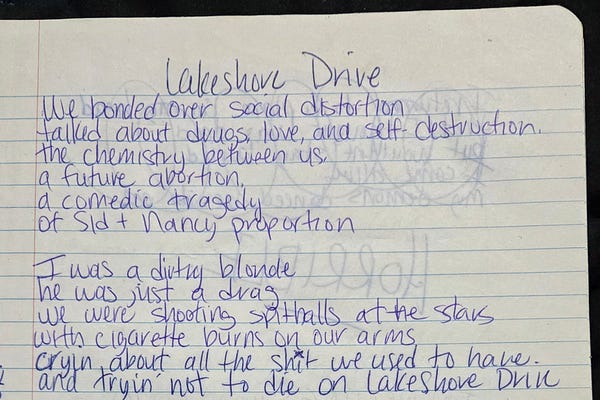 Lakeshore Drive
We bonded over social distortion
talked about drugs, love, and self-destruction.
the chemistry between us,
a future abortion,
a comedic tragedy
of Sid + Nancy proportion
I was a dirty blonde
he was just a drag
we were shooting spitballs at the stars
with cigarette burns on our arms
cryin' about all the sh*t we used to have.
and tryin' not to die on Lakeshore Drive